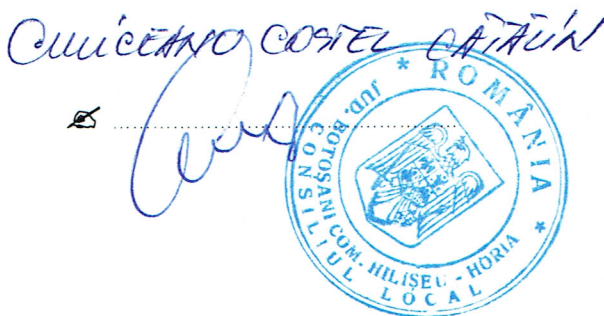 COSTEL CĂTĂLIN
* ROMÂNIA *
JUD. BOTOŞANI COM. HILIŞEU - HORIA
CONSILIUL LOCAL